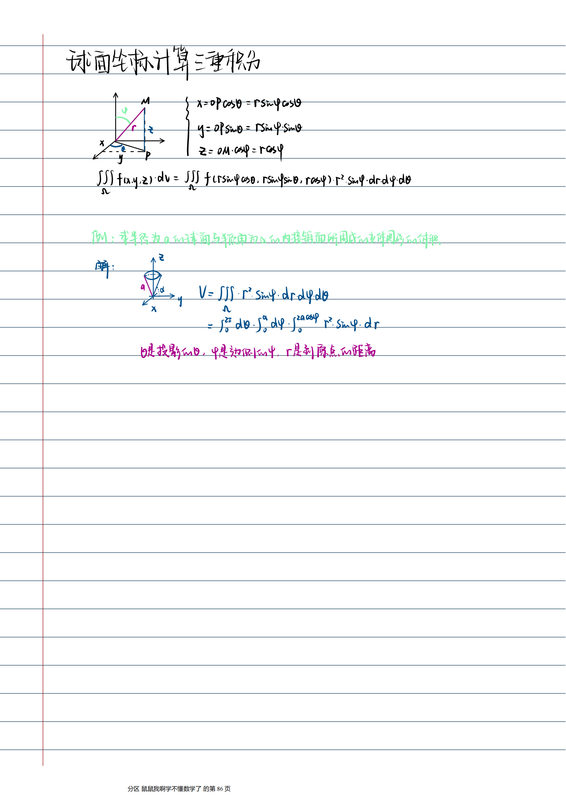 球面坐标计算三重积分
M
r
z
x
θ
y
P
x=OPcosθ=rsinφcosθ
y=OPsinθ=rsinφ·sinθ
z=OM·cosφ=rcosφ
∭Ω f(x,y,z)·dv = ∭Ω f(rsinφcosθ, rsinφsinθ, rcosφ)·r² sinφ·drdφdθ
例:求半径为a的球面与半顶角为α的内接锥面所围成的
解:
z
a
α
x
y
V=∭Ω·r² sinφ·drdφdθ
=∫₀^2π dθ·∫₀^α dφ·∫₀^2acosφ r²·sinφ·dr
θ是投影的θ, φ是 的φ, r是到原点的距离
分区 鼠鼠我啊学不懂数学了 的第 86 页